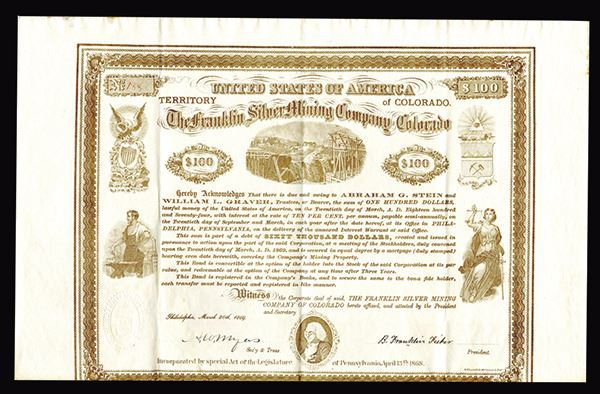 No. 185
UNITED STATES OF AMERICA
$100
TERRITORY of COLORADO.
The Franklin Silver Mining Company, Colorado
$100 $100
Hereby Acknowledges That there is due and owing to ABRAHAM G. STEIN and
WILLIAM L. GRAVER, Trustees, or Bearer, the sum of ONE HUNDRED DOLLARS,
lawful money of the United States of America, on the Twentieth day of March, A. D. Eighteen hundred
and Seventy-four, with interest at the rate of TEN PER CENT. per annum, payable semi-annually, on
the Twentieth day of September and March, in each year after the date hereof, at its Office in PHILA-
DELPHIA, PENNSYLVANIA, on the delivery of the annexed Interest Warrant at said Office.
This sum is part of a debt of SIXTY THOUSAND DOLLARS, created and issued in
pursuance to action upon the part of the said Corporation, at a meeting of the Stockholders, duly convened
upon the Twentieth day of March, A. D. 1869, and is secured in equal degree by a mortgage (duly stamped)
bearing even date herewith, covering the Company's Mining Property.
This Bond is convertible at the option of the holder into the Stock of the said Corporation at its par
value, and redeemable at the option of the Company at any time after Three Years.
This Bond is Registered in the Company's Books, and to secure the same to the bona fide holder,
each transfer must be reported and registered in like manner.
Witness the Corporate Seal of said, THE FRANKLIN SILVER MINING
COMPANY OF COLORADO hereto affixed, and attested by the President
and Secretary
Philadelphia, March 20th, 1869.
Myers
Sec'y & Treas
B. Franklin Fisher
President
Incorporated by special Act of the Legislature of Pennsylvania, April 13th 1868.